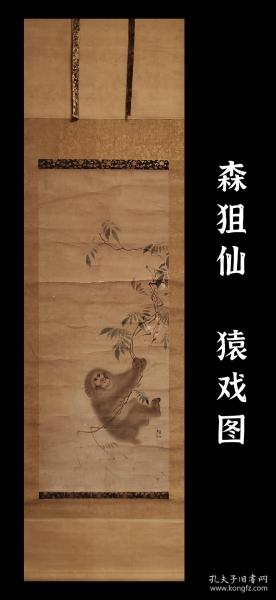 森狙仙 猿戏图
孔夫子旧书网
www.kongfz.com